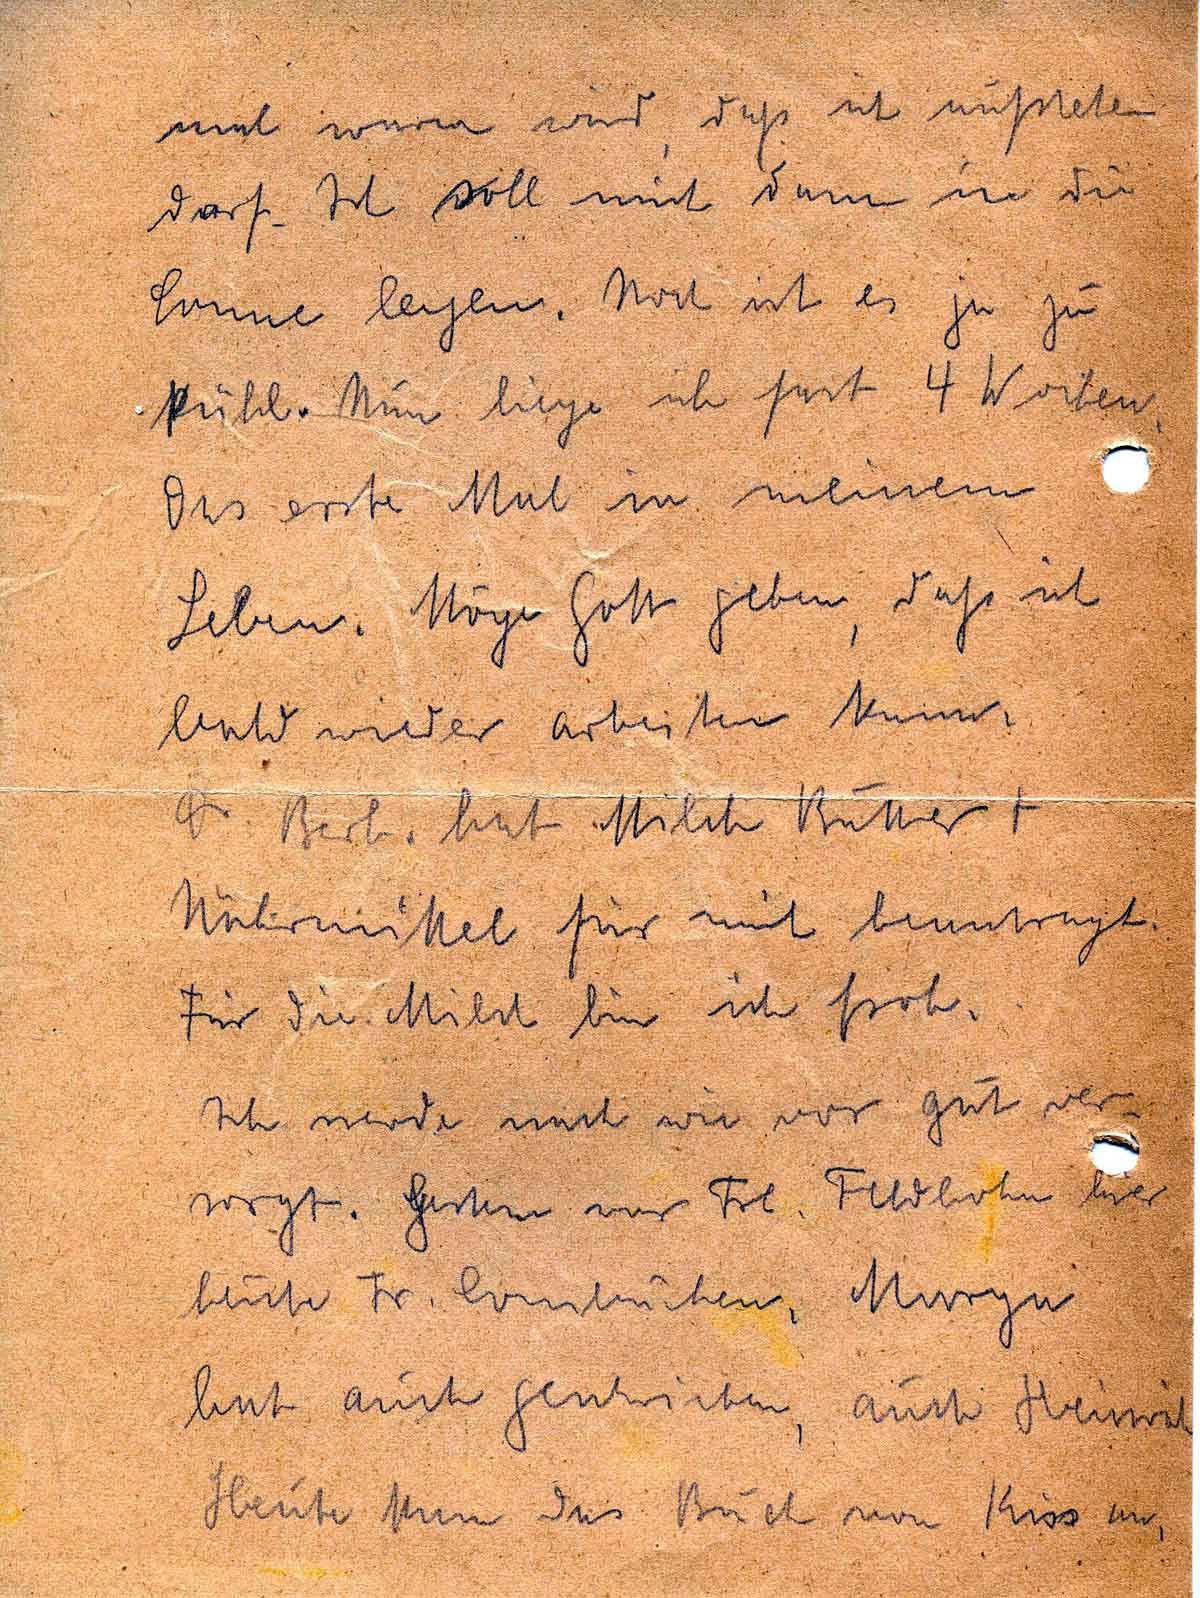 mal warm wird, daß ich aufstehen
darf. Ich soll mich dann in die
Sonne legen. Noch ist es ja zu
kühl. Nun liege ich fast 4 Wochen,
Das erste Mal in meinem
Leben. Möge Gott geben, daß ich
bald wieder arbeiten kann.
Dr. Berh. hat Milch Butter +
Nährmittel für mich beantragt.
Für die Milch bin ich froh.
Ich werde nach wie vor gut ver-
sorgt. Gestern war Frl. Feldhohn hier
heute Fr. Marga
hat auch geschrieben, auch Heinrich
Heute kam das Buch von Kiss an,